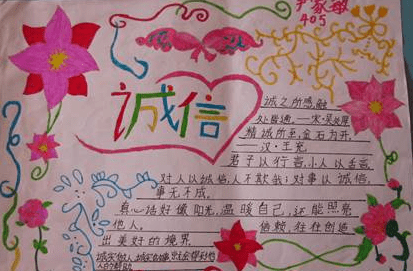 尹家敏
405
诚信
诚之所感,触
处皆通,——宋·吴处厚
精诚所至,金石为开,
——汉·王充
君子以行言,小人以舌言
对人以诚信,人不欺我;对事以诚信,
事无不成。
真心话好像阳光,温暖自己,还能照亮
他人。信赖,往往创造
出美好的境界